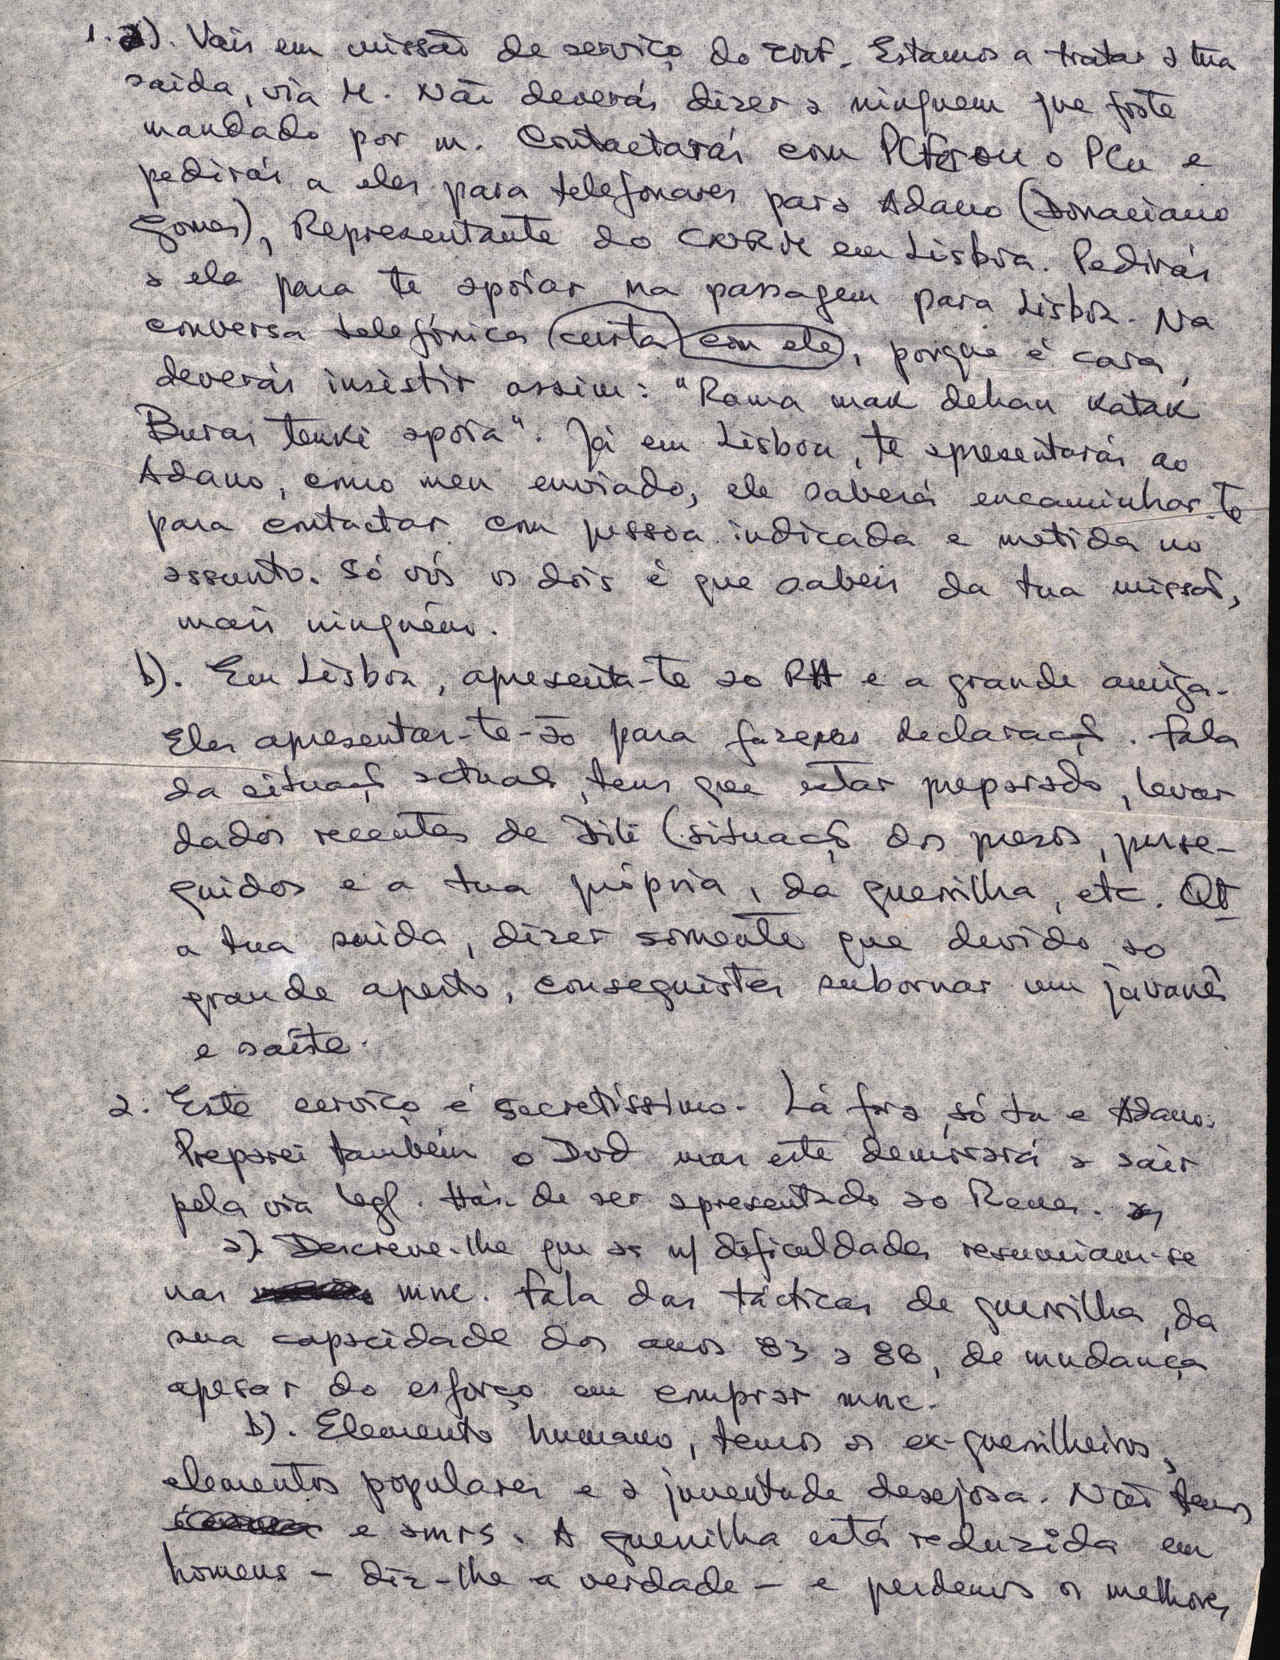 1. a). Vais em missão de serviço do . Estamos a tratar a tua
saída, via H. Não deverás dizer a ninguem que foste
mandado por m. Contactarás com o PCu e
pedirás a eles para telefonares para Adano (Donaciano
Gomes), Representante do CNRM em Lisboa. Pedirás
a ele para te apoiar na passagem para Lisboa. Na
conversa telefónica (curta) com ele, porque é cara,
deverás insistir assim: "Rama mak dehan katak
Buras tenki apoia". Já em Lisboa, te apresentarás ao
Adano, como meu enviado, ele saberá encaminhar-te
para contactar com pessoa indicada e metida no
assunto. Só vós os dois é que sabeis da tua missão,
mais ninguém.
b). Em Lisboa, apresenta-te ao RH e a grande amiga.
Eles apresentar-te-ão para fazeres declaraçõ. Fala
da situaçõ actual, tens que estar preparado, levar
dados recentes de Dili (situaçõ dos presos, perse-
guidos e a tua própria, da guerrilha, etc. Qt
a tua saida, dizer somente que devido ao
grande aperto, conseguistes subornar um javanês
e saíste.
2. Este serviço é secretíssimo. Lá fora, só tu e Adano.
Preparei também o Dvd mas este demorará a sair
pela via legl. Hás-de ser apresentado ao .
a). Descreve-lhe que as n/ dificuldades resumiam-se
nas mnc. Fala das tácticas de guerrilha, da
sua capacidade dos anos 83 a 86, de mudança
apesar do esforço em comprar mnc.
b). Elemento humano, temos os ex-guerrilheiros,
elementos populares e a juventude desejosa. Não temos
e amrs. A guerrilha está reduzida em
homens - diz-lhe a verdade - e perdemos os melhores